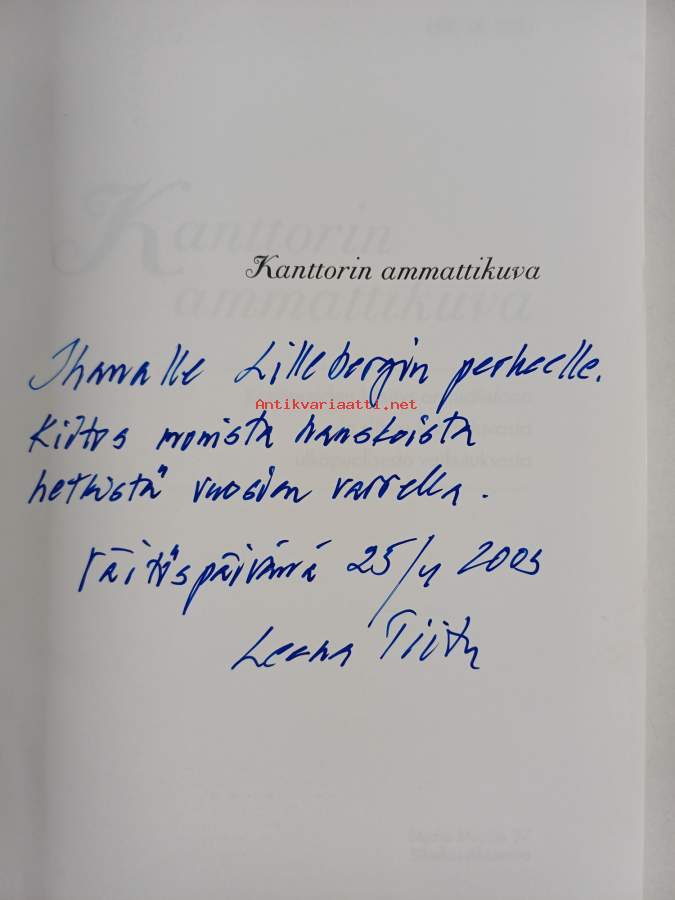 Kanttorin ammattikuva
Ihanalle Lillebergin perheelle.
Antikvariaatti.net
Kiitos monista hauskoista
hetkistä vuosien varrella.
Väitöspäivänä 25/4 2003
Leena Tiitu